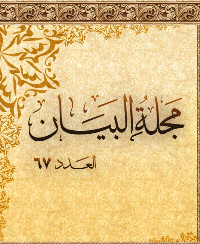 مجلة البيان
العدد ٦٧